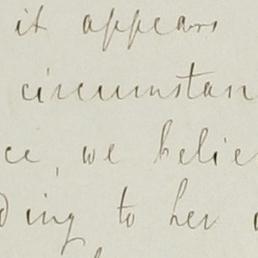 it appears
circumstan
ce, we belie
ding to her